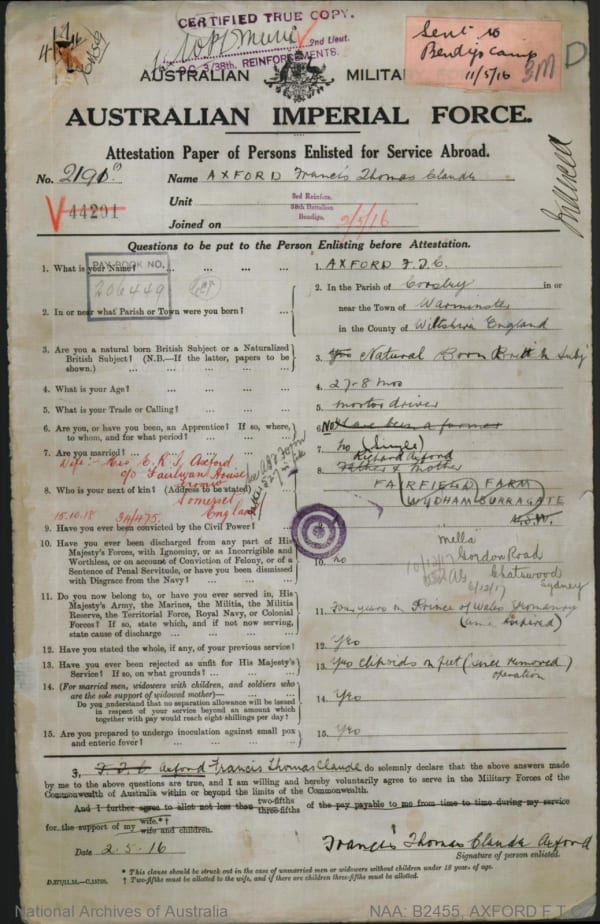 CERTIFIED TRUE COPY.
2nd Lieut.
O.C. 3/38th. REINFORCEMENTS.
Sent to
Bendigo camp
11/5/16
3M D
AUSTRALIAN MILITARY
AUSTRALIAN IMPERIAL FORCE.
Attestation Paper of Persons Enlisted for Service Abroad.
No. 2190 Name AXFORD Francis Thomas Claude
44291
Unit 3rd Reinfcs. 38th Battalion Bendigo.
Joined on 2/5/16
Questions to be put to the Person Enlisting before Attestation.
PAY-BOOK NO.
206449
1. What is your Name? ... ... ... ... 1. AXFORD F.T.C.
2. In or near what Parish or Town were you born? ... 2. In the Parish of Corsley in or
near the Town of Warminster
in the County of Wiltshire England
3. Are you a natural born British Subject or a Naturalized
British Subject? (N.B.—If the latter, papers to be
shown.) 3. Yes Natural Born British Subj
4. What is your Age? 4. 27-8 mos
5. What is your Trade or Calling? 5. motor driver
6. Are you, or have you been, an Apprentice? If so, where,
to whom, and for what period? 6. No Have been a farmer
7. Are you married? 7. No (Single)
Wife:- Mrs E.K.S. Axford
c/o Fairlwyan House
Frome
Somerset
England
15.10.18 34/475.
8. Who is your next of kin? (Address to be stated) 8. Richard Axford
Father & Mother
FAIRFIELD FARM
WYDHAM BURRAGATE
N.S.W.
"Mella"
Gordon Road
Chatswood
Sydney
10/12/17
6/12/17
9. Have you ever been convicted by the Civil Power?
10. Have you ever been discharged from any part of His
Majesty's Forces, with Ignominy, or as Incorrigible and
Worthless, or on account of Conviction of Felony, or of a
Sentence of Penal Servitude, or have you been dismissed
with Disgrace from the Navy? 10. no
11. Do you now belong to, or have you ever served in, His
Majesty's Army, the Marines, the Militia, the Militia
Reserve, the Territorial Force, Royal Navy, or Colonial
Forces? If so, state which, and if not now serving,
state cause of discharge 11. Four years in Prince of Wales Yeomanry
(time Expired)
12. Have you stated the whole, if any, of your previous service? 12. Yes
13. Have you ever been rejected as unfit for His Majesty's
Service? If so, on what grounds? 13. Yes feet (since removed)
operation
14. (For married men, widowers with children, and soldiers who
are the sole support of widowed mother)—
Do you understand that no separation allowance will be issued
in respect of your service beyond an amount which
together with pay would reach eight shillings per day? 14. Yes
15. Are you prepared to undergo inoculation against small pox
and enteric fever? 15. Yes
I, F.T.C. Axford Francis Thomas Claude do solemnly declare that the above answers made
by me to the above questions are true, and I am willing and hereby voluntarily agree to serve in the Military Forces of the
Commonwealth of Australia within or beyond the limits of the Commonwealth.
And I further agree to allot not less than two-fifths three-fifths of the pay payable to me from time to time during my service
for the support of my wife.*†
wife and children.
Date 2.5.16
Francis Thomas Claude Axford
Signature of person enlisted.
* This clause should be struck out in the case of unmarried men or widowers without children under 18 years of age.
† Two-fifths must be allotted to the wife, and if there are children three-fifths must be allotted.
National Archives of Australia
NAA: B2455, AXFORD F T C